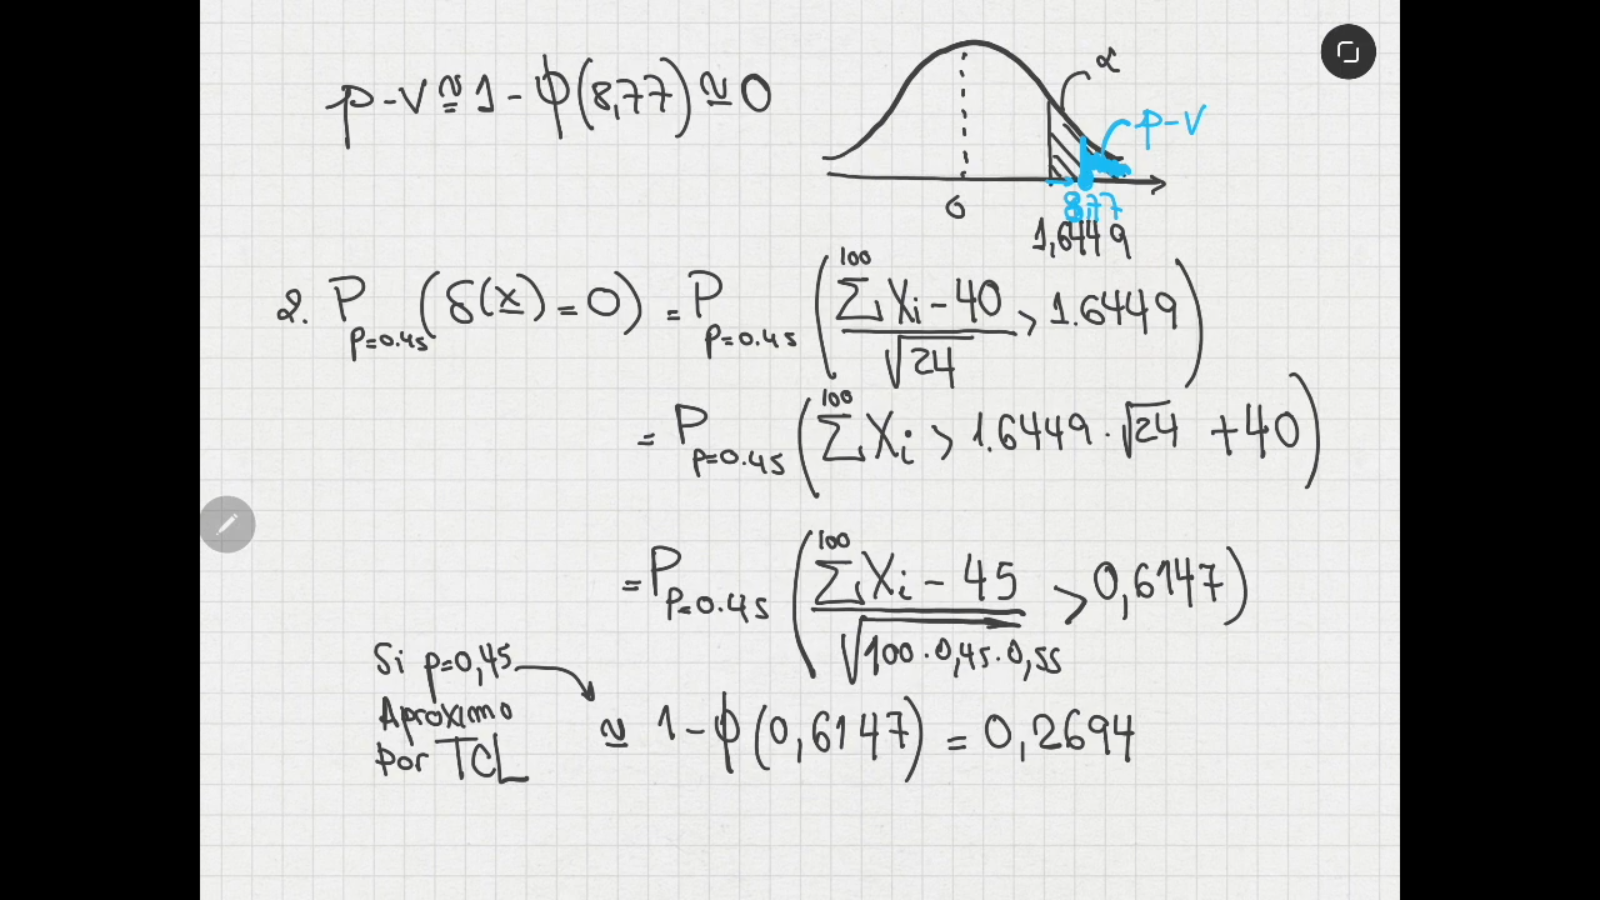 p-V ≅ 1 - ϕ(8,77) ≃ 0
α
p-V
0
8,77
1,6449
2. P_{p=0.45}(δ(x) = 0) = P_{p=0.45}((∑^{100} Xi - 40)/√24 > 1.6449)
= P_{p=0.45}(∑^{100} Xi > 1.6449 · √24 + 40)
= P_{p=0.45}((∑^{100} Xi - 45)/√(100 · 0,45 · 0,55) > 0,6147)
Si p=0,45
Aproximo
por TCL
≃ 1 - ϕ(0,6147) = 0,2694